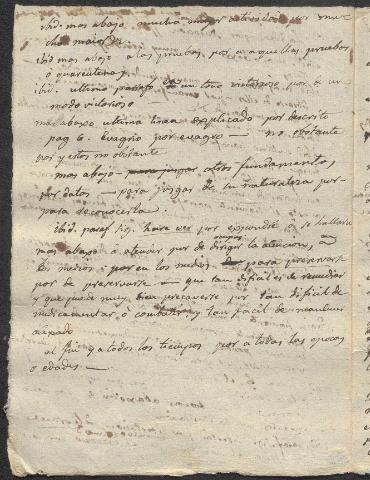 ibid. mas abajo, mucha mayor extension por muc-
cha maior
ibid mas abajo a las pruebas, por a aquellas pruebas
o quarentena,
ibi. ultimo parrafo en un tono victorioso por a un
modo victorioso —
mas abaxo ultima linea explicado por descrito
pag 6. Evagrio por evagro — no obstante
por y esto no obstante
mas abajo — para juzgar otros fundamentos,
por datos — para juzgar de su naturaleza por
para reconocerla.
ibid. paraf. sig. hace ver por expondré a se hallarse
mas abaxo a atencion por de dirigir la atencion, a
los medios por en los medios — para preservarse
por de preservarse — que tan dificil es de remediar
y que puede muy bien precaverse por tan dificil de
medicamentar, o combatir, y tan facil de
al fin y a todos los tiempos por a todas las epocas
o edades —